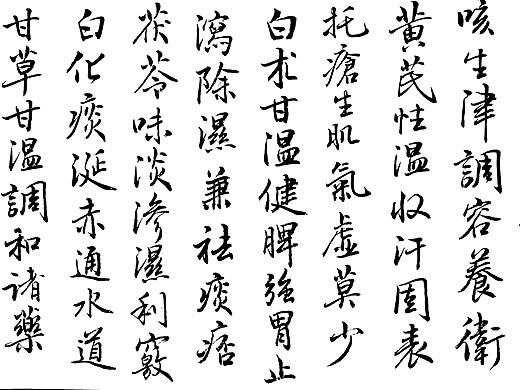 咳生津調容養衛
黄芪性温收汗固表
托瘡生肌氣虛莫少
白朮甘温健脾強胃止
瀉除濕兼祛痰痞
茯苓味淡滲濕利竅
白化痰涎赤通水道
甘草甘温調和诸藥